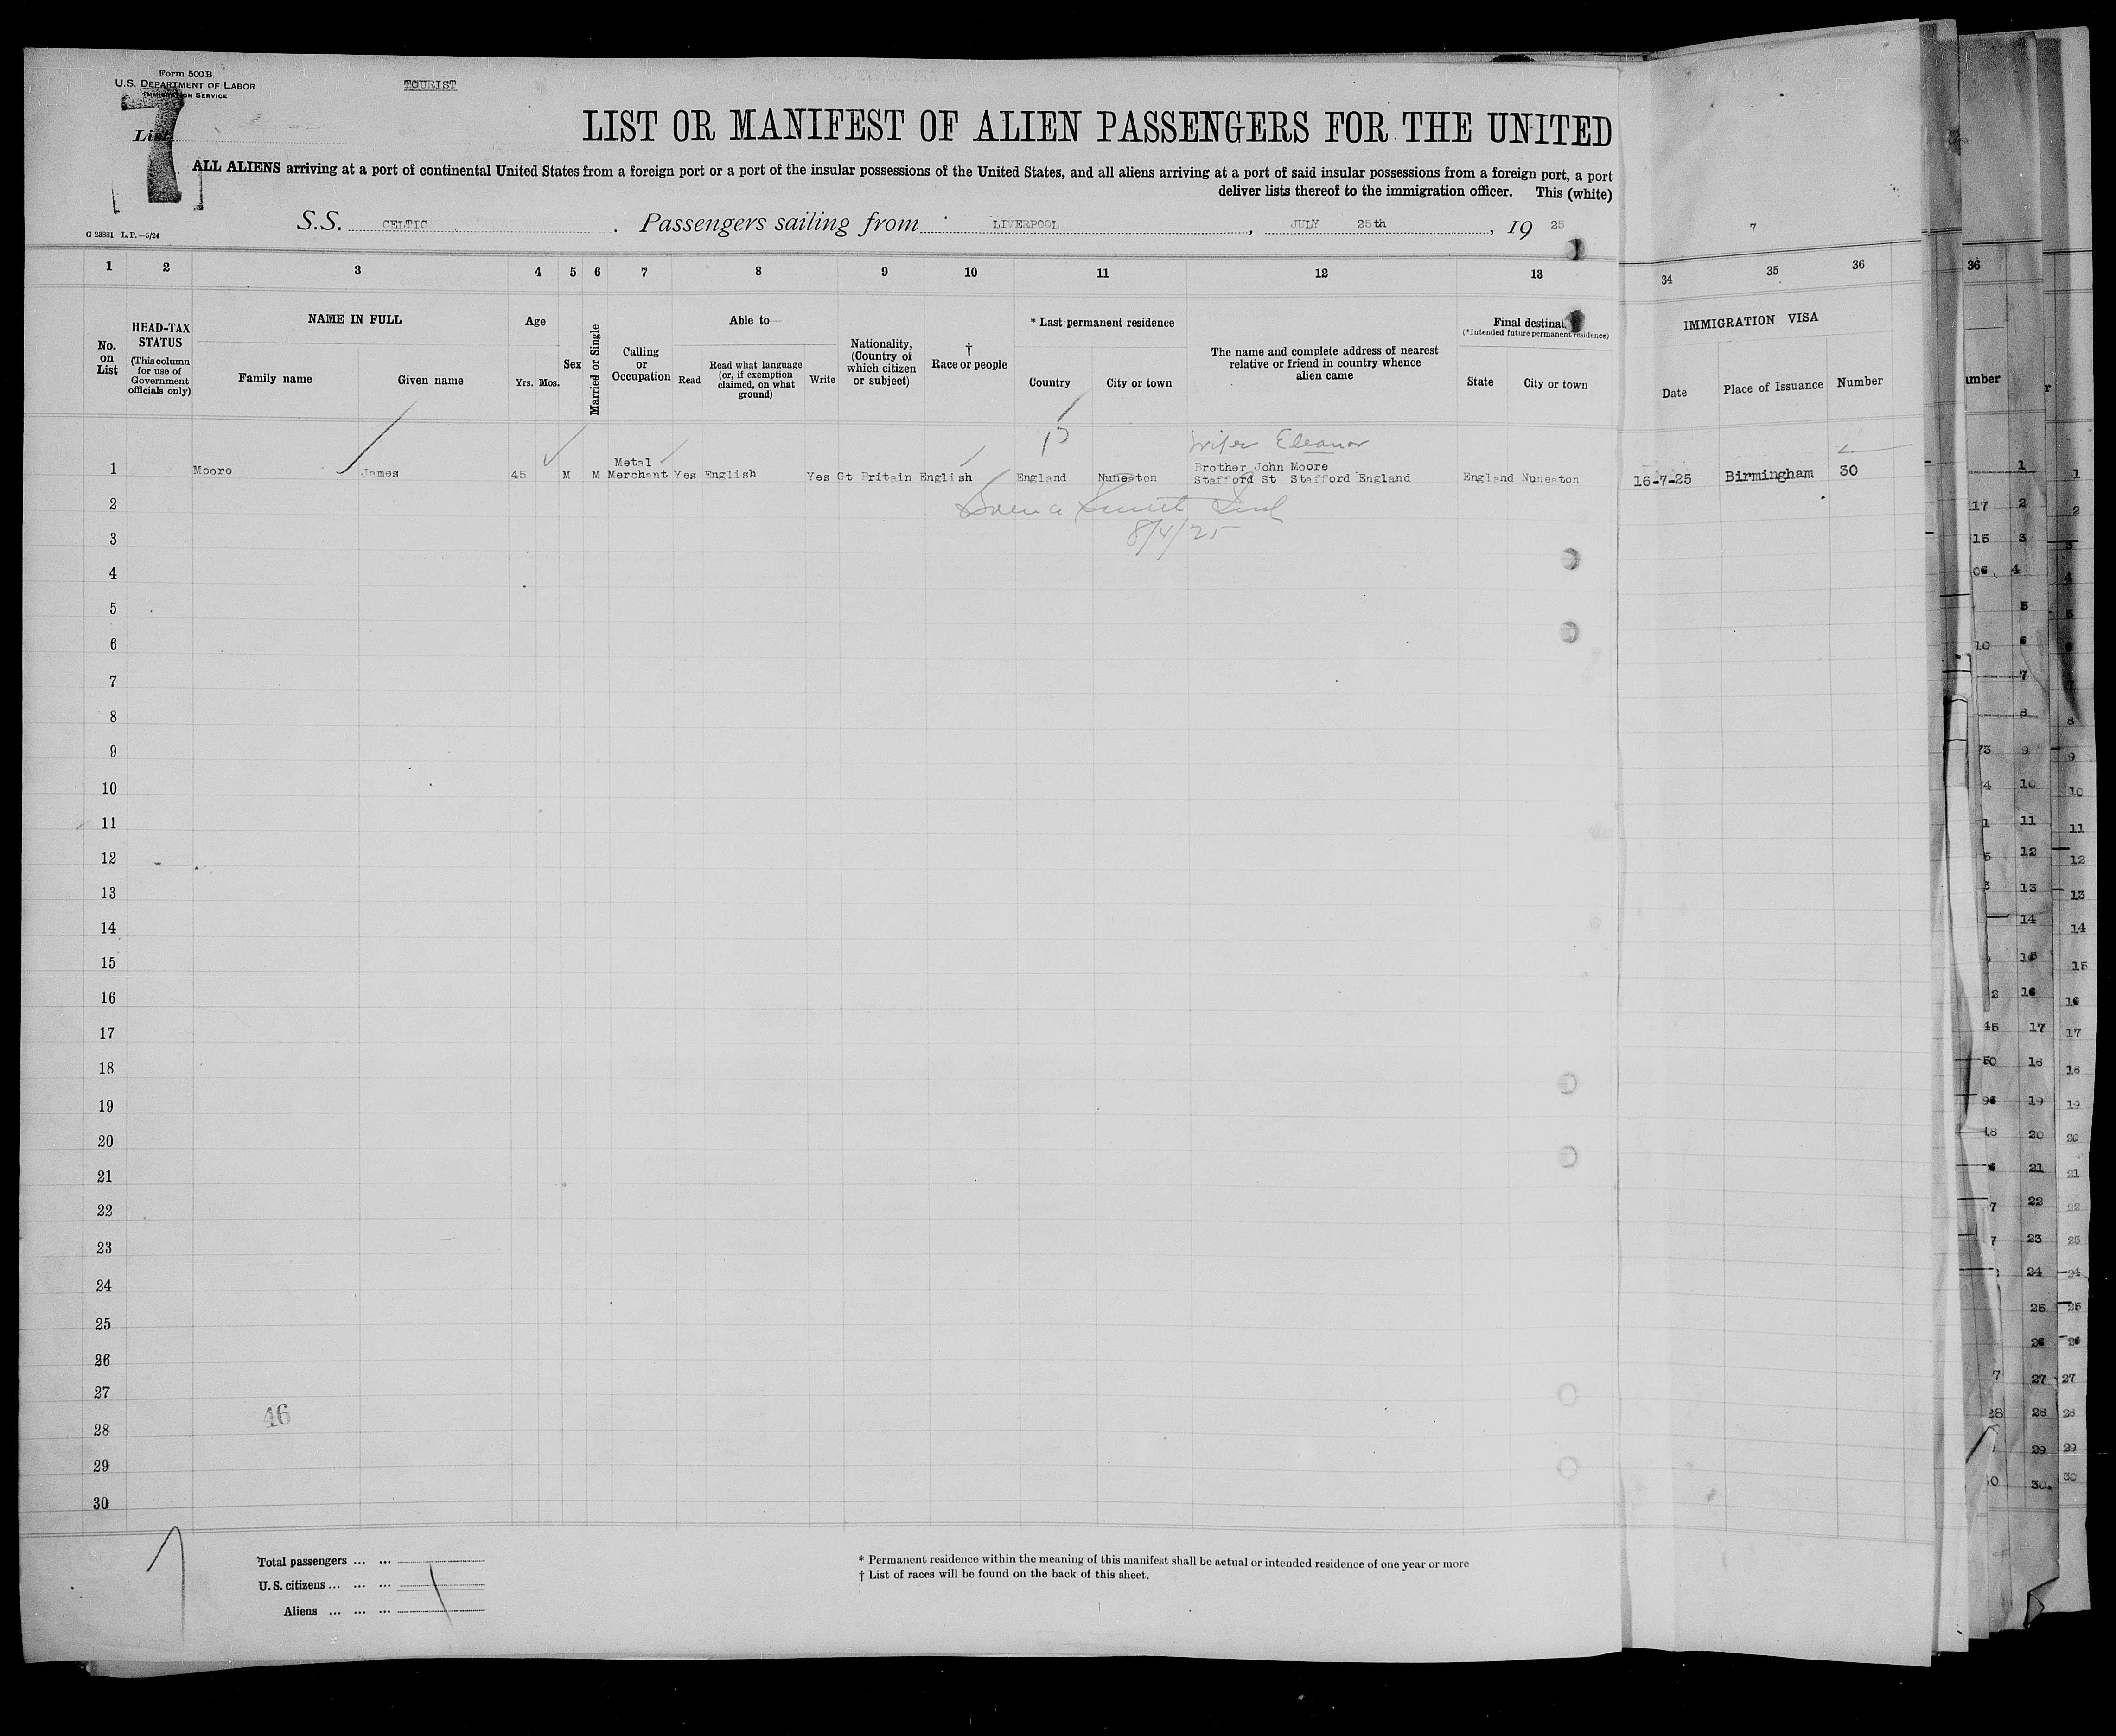 Form 500 B
U.S. DEPARTMENT OF LABOR
IMMIGRATION SERVICE
TOURIST
List
7
LIST OR MANIFEST OF ALIEN PASSENGERS FOR THE UNITED
ALL ALIENS arriving at a port of continental United States from a foreign port or a port of the insular possessions of the United States, and all aliens arriving at a port of said insular possessions from a foreign port, a port
deliver lists thereof to the immigration officer. This (white)
S.S. CELTIC . Passengers sailing from LIVERPOOL , JULY 25th , 19 25
7
G 23881 L.P.—5/24
1 2 3 4 5 6 7 8 9 10 11 12 13 34 35 36
No. on List
HEAD-TAX STATUS
(This column for use of Government officials only)
NAME IN FULL
Family name
Given name
Age
Yrs. Mos.
Sex
Married or Single
Calling or Occupation
Able to—
Read
Read what language (or, if exemption claimed, on what ground)
Write
Nationality, (Country of which citizen or subject)
† Race or people
* Last permanent residence
Country
City or town
The name and complete address of nearest relative or friend in country whence alien came
(*Intended future permanent residence)
State
City or town
IMMIGRATION VISA
Date
Place of Issuance
Number
wife Eleanor
1 Moore James 45 M M Metal Merchant Yes English Yes Gt Britain English England Nuneaton Brother John Moore Stafford St Stafford England England Nuneaton 16-7-25 Birmingham 30
8/4/25
2
3
4
5
6
7
8
9
10
11
12
13
14
15
16
17
18
19
20
21
22
23
24
25
26
27
46
28
29
30
Total passengers ... ...
U.S. citizens ... ... ...
Aliens ... ... ...
* Permanent residence within the meaning of this manifest shall be actual or intended residence of one year or more
† List of races will be found on the back of this sheet.